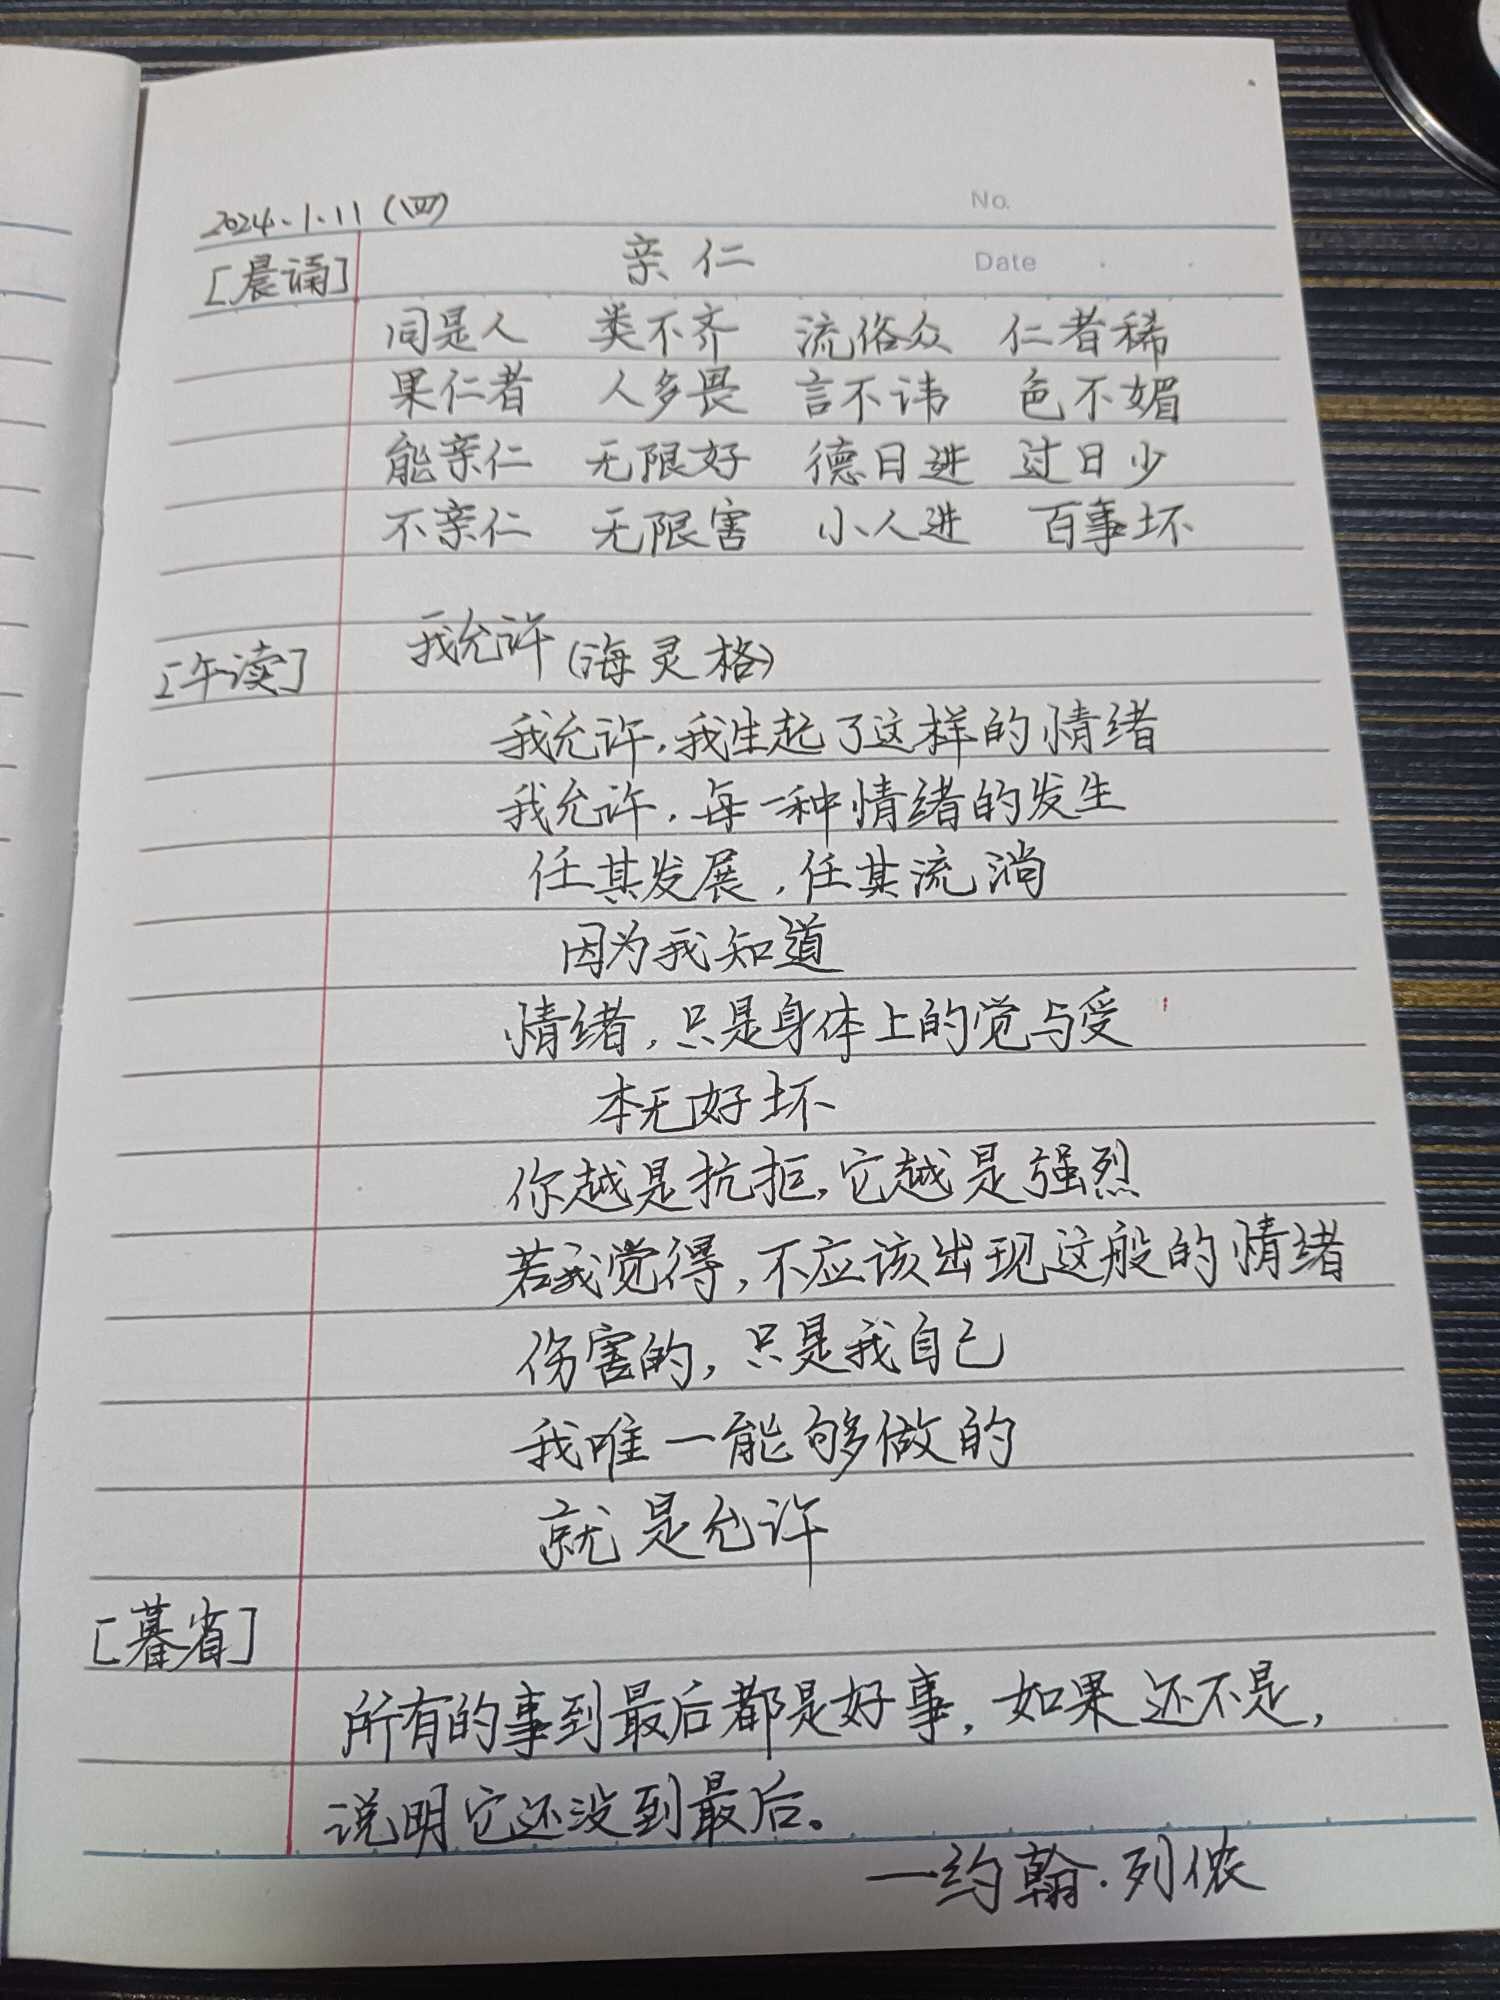 2024.1.11 (四)
No.
[晨诵] 亲仁
Date
同是人 类不齐 流俗众 仁者稀
果仁者 人多畏 言不讳 色不媚
能亲仁 无限好 德日进 过日少
不亲仁 无限害 小人进 百事坏
[午读] 我允许(海灵格)
我允许,我生起了这样的情绪
我允许,每一种情绪的发生
任其发展,任其流淌
因为我知道
情绪,只是身体上的觉与受
本无好坏
你越是抗拒,它越是强烈
若我觉得,不应该出现这般的情绪
伤害的,只是我自己
我唯一能够做的
就是允许
[暮省]
所有的事到最后都是好事,如果还不是,
说明它还没到最后。
—约翰·列侬